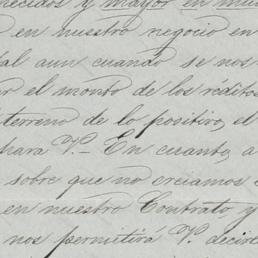 necidos y mayor en mu
en nuestro negocio en
al aun cuando se nos
ar el monto de los rédito
terreno de lo positivo, el
para V.— En cuanto, a
sobre que no creiamos
en nuestro Contrato, y
nos permitirá V. decirl